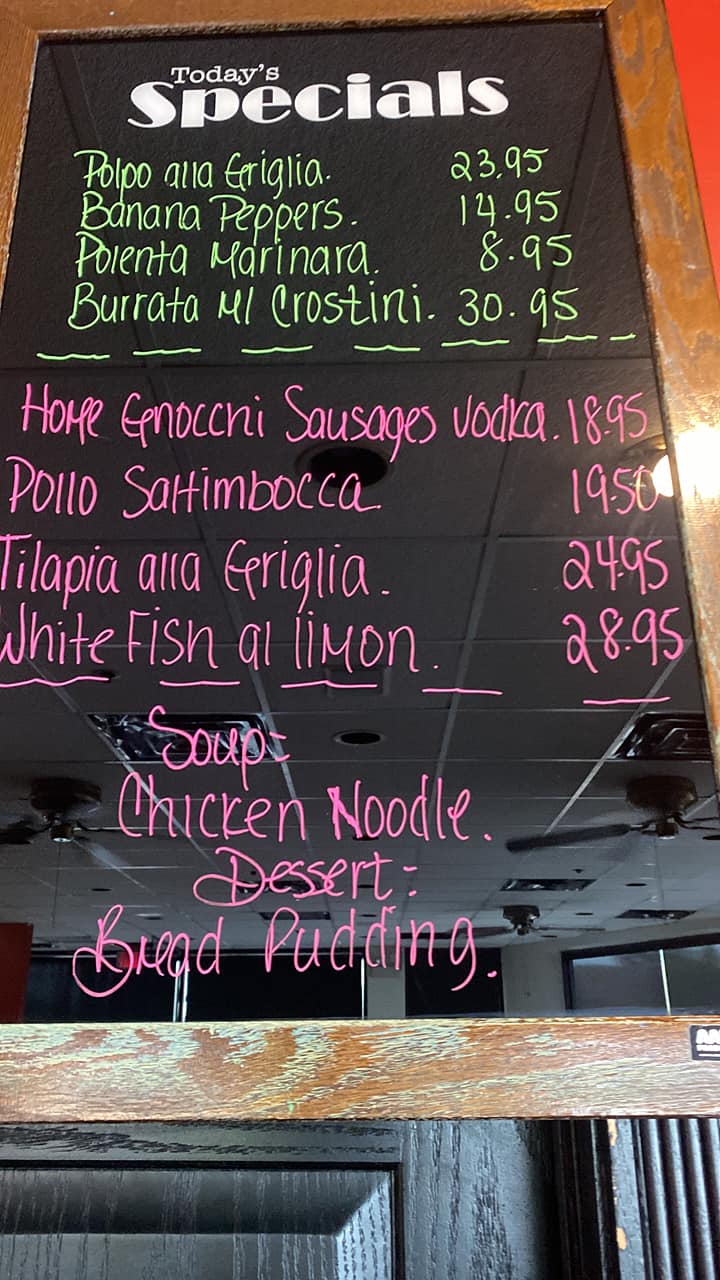 Today's
Specials
Polpo alla Griglia. 23.95
Banana Peppers. 14.95
Polenta Marinara. 8.95
Burrata W/ Crostini. 30.95
Home Gnocchi Sausages Vodka. 18.95
Pollo Saltimbocca. 19.50
Tilapia alla Griglia. 24.95
White Fish al limon. 28.95
Soup:
Chicken Noodle.
Dessert:
Bread Pudding.